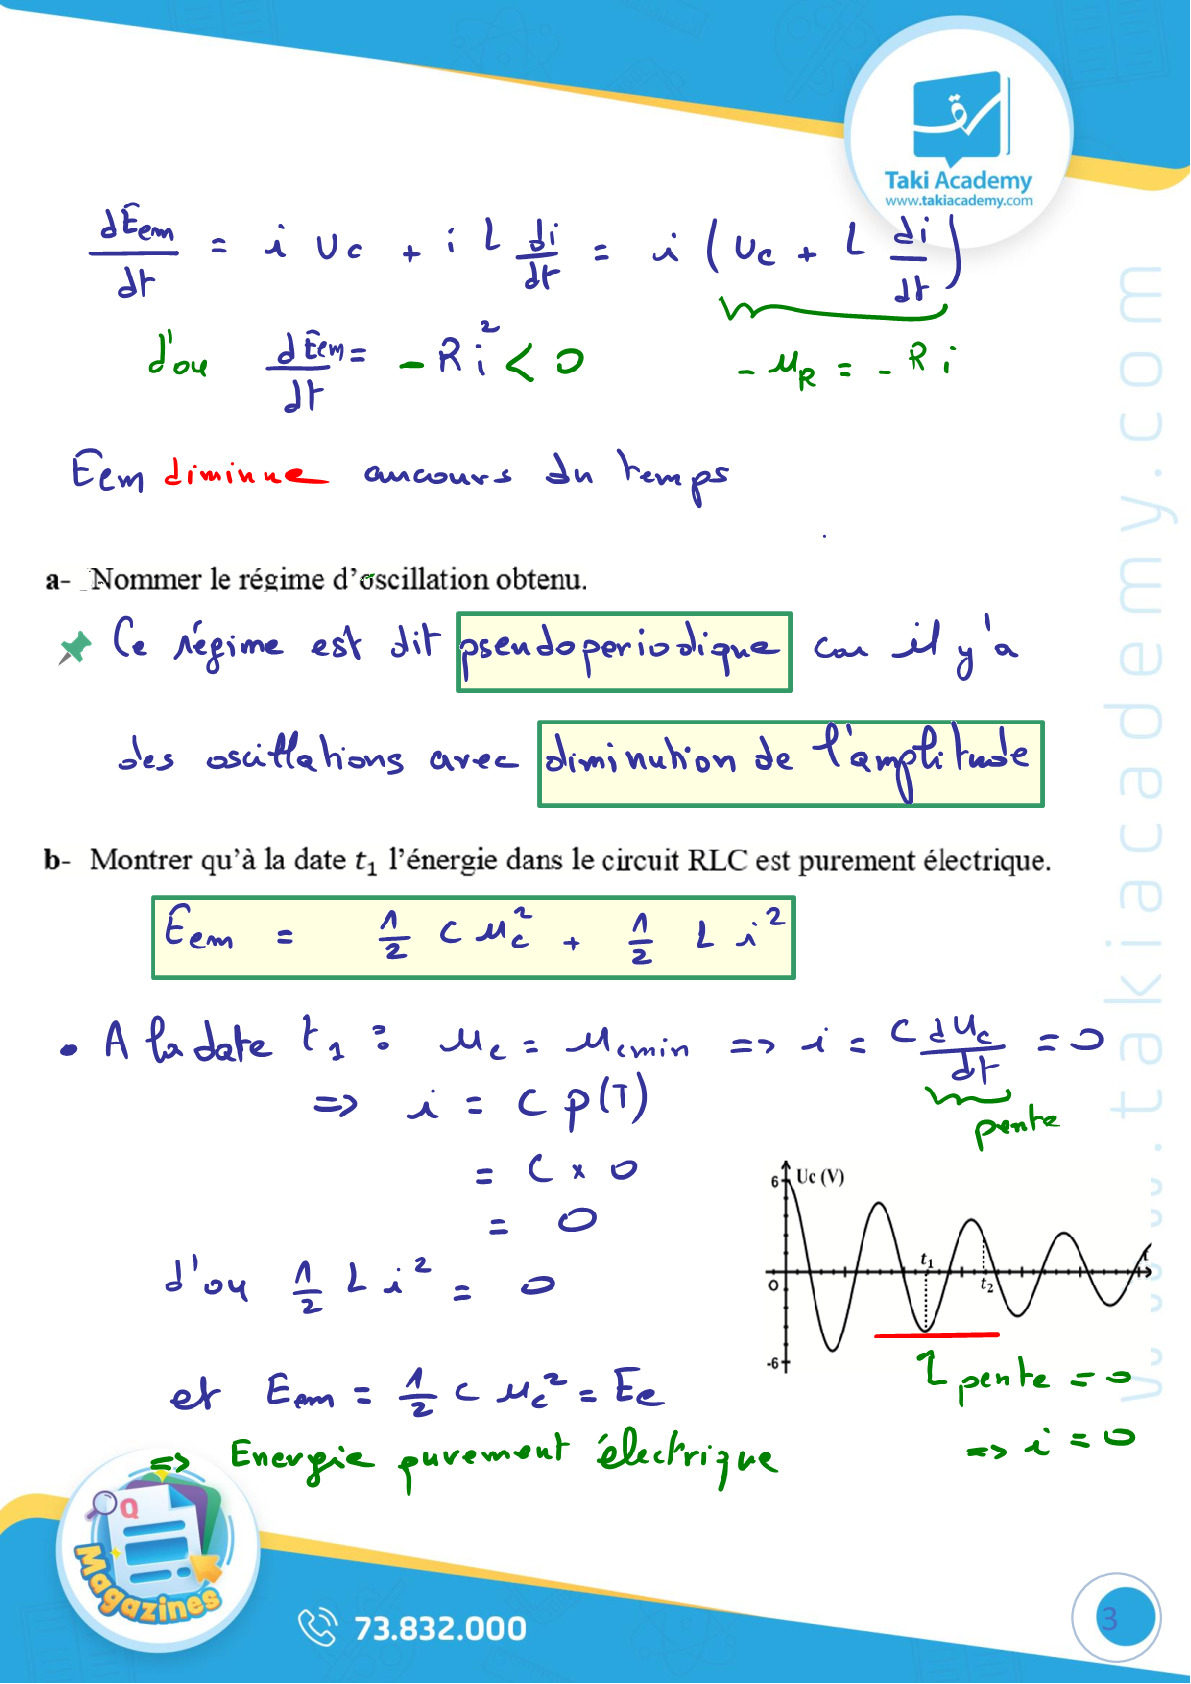 Taki Academy
www.takiacademy.com
dEem/dt = i Uc + i L di/dt = i (Uc + L di/dt)
d'où dEem/dt = - R i² < 0
- uR = - R i
Eem diminue aucours du temps
a- Nommer le régime d'oscillation obtenu.
Ce régime est dit pseudoperiodique car il y'a
des oscillations avec diminution de l'amplitude
b- Montrer qu'à la date t₁ l'énergie dans le circuit RLC est purement électrique.
Eem = 1/2 C uc² + 1/2 L i²
• A la date t₁ : uc = ucmin => i = C dUc/dt = 0
pente
=> i = C p(T)
= C x 0
= 0
d'où 1/2 L i² = 0
et Eem = 1/2 C uc² = Ee
=> Energie purement électrique
6 Uc (V)
t₁
t
0
t₂
-6
pente = 0
=> i = 0
www.takiacademy.com
Q
Magazines
73.832.000
3